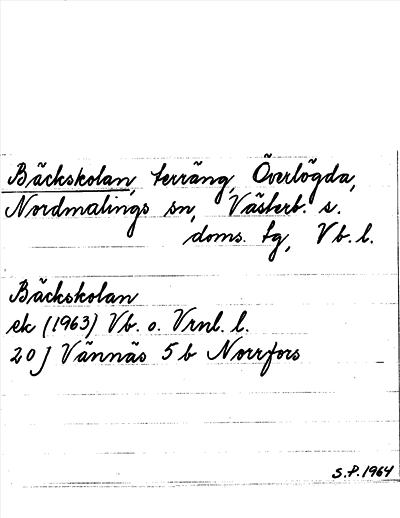 Bäckskolan, terräng, Överlögda,
Nordmalings sn, Västerb. s.
doms. tg, Vb. l.
Bäckskolan
ek (1963) Vb. o. Vrnl. l.
20 J Vännäs 5 b Norrfors
S.P. 1964